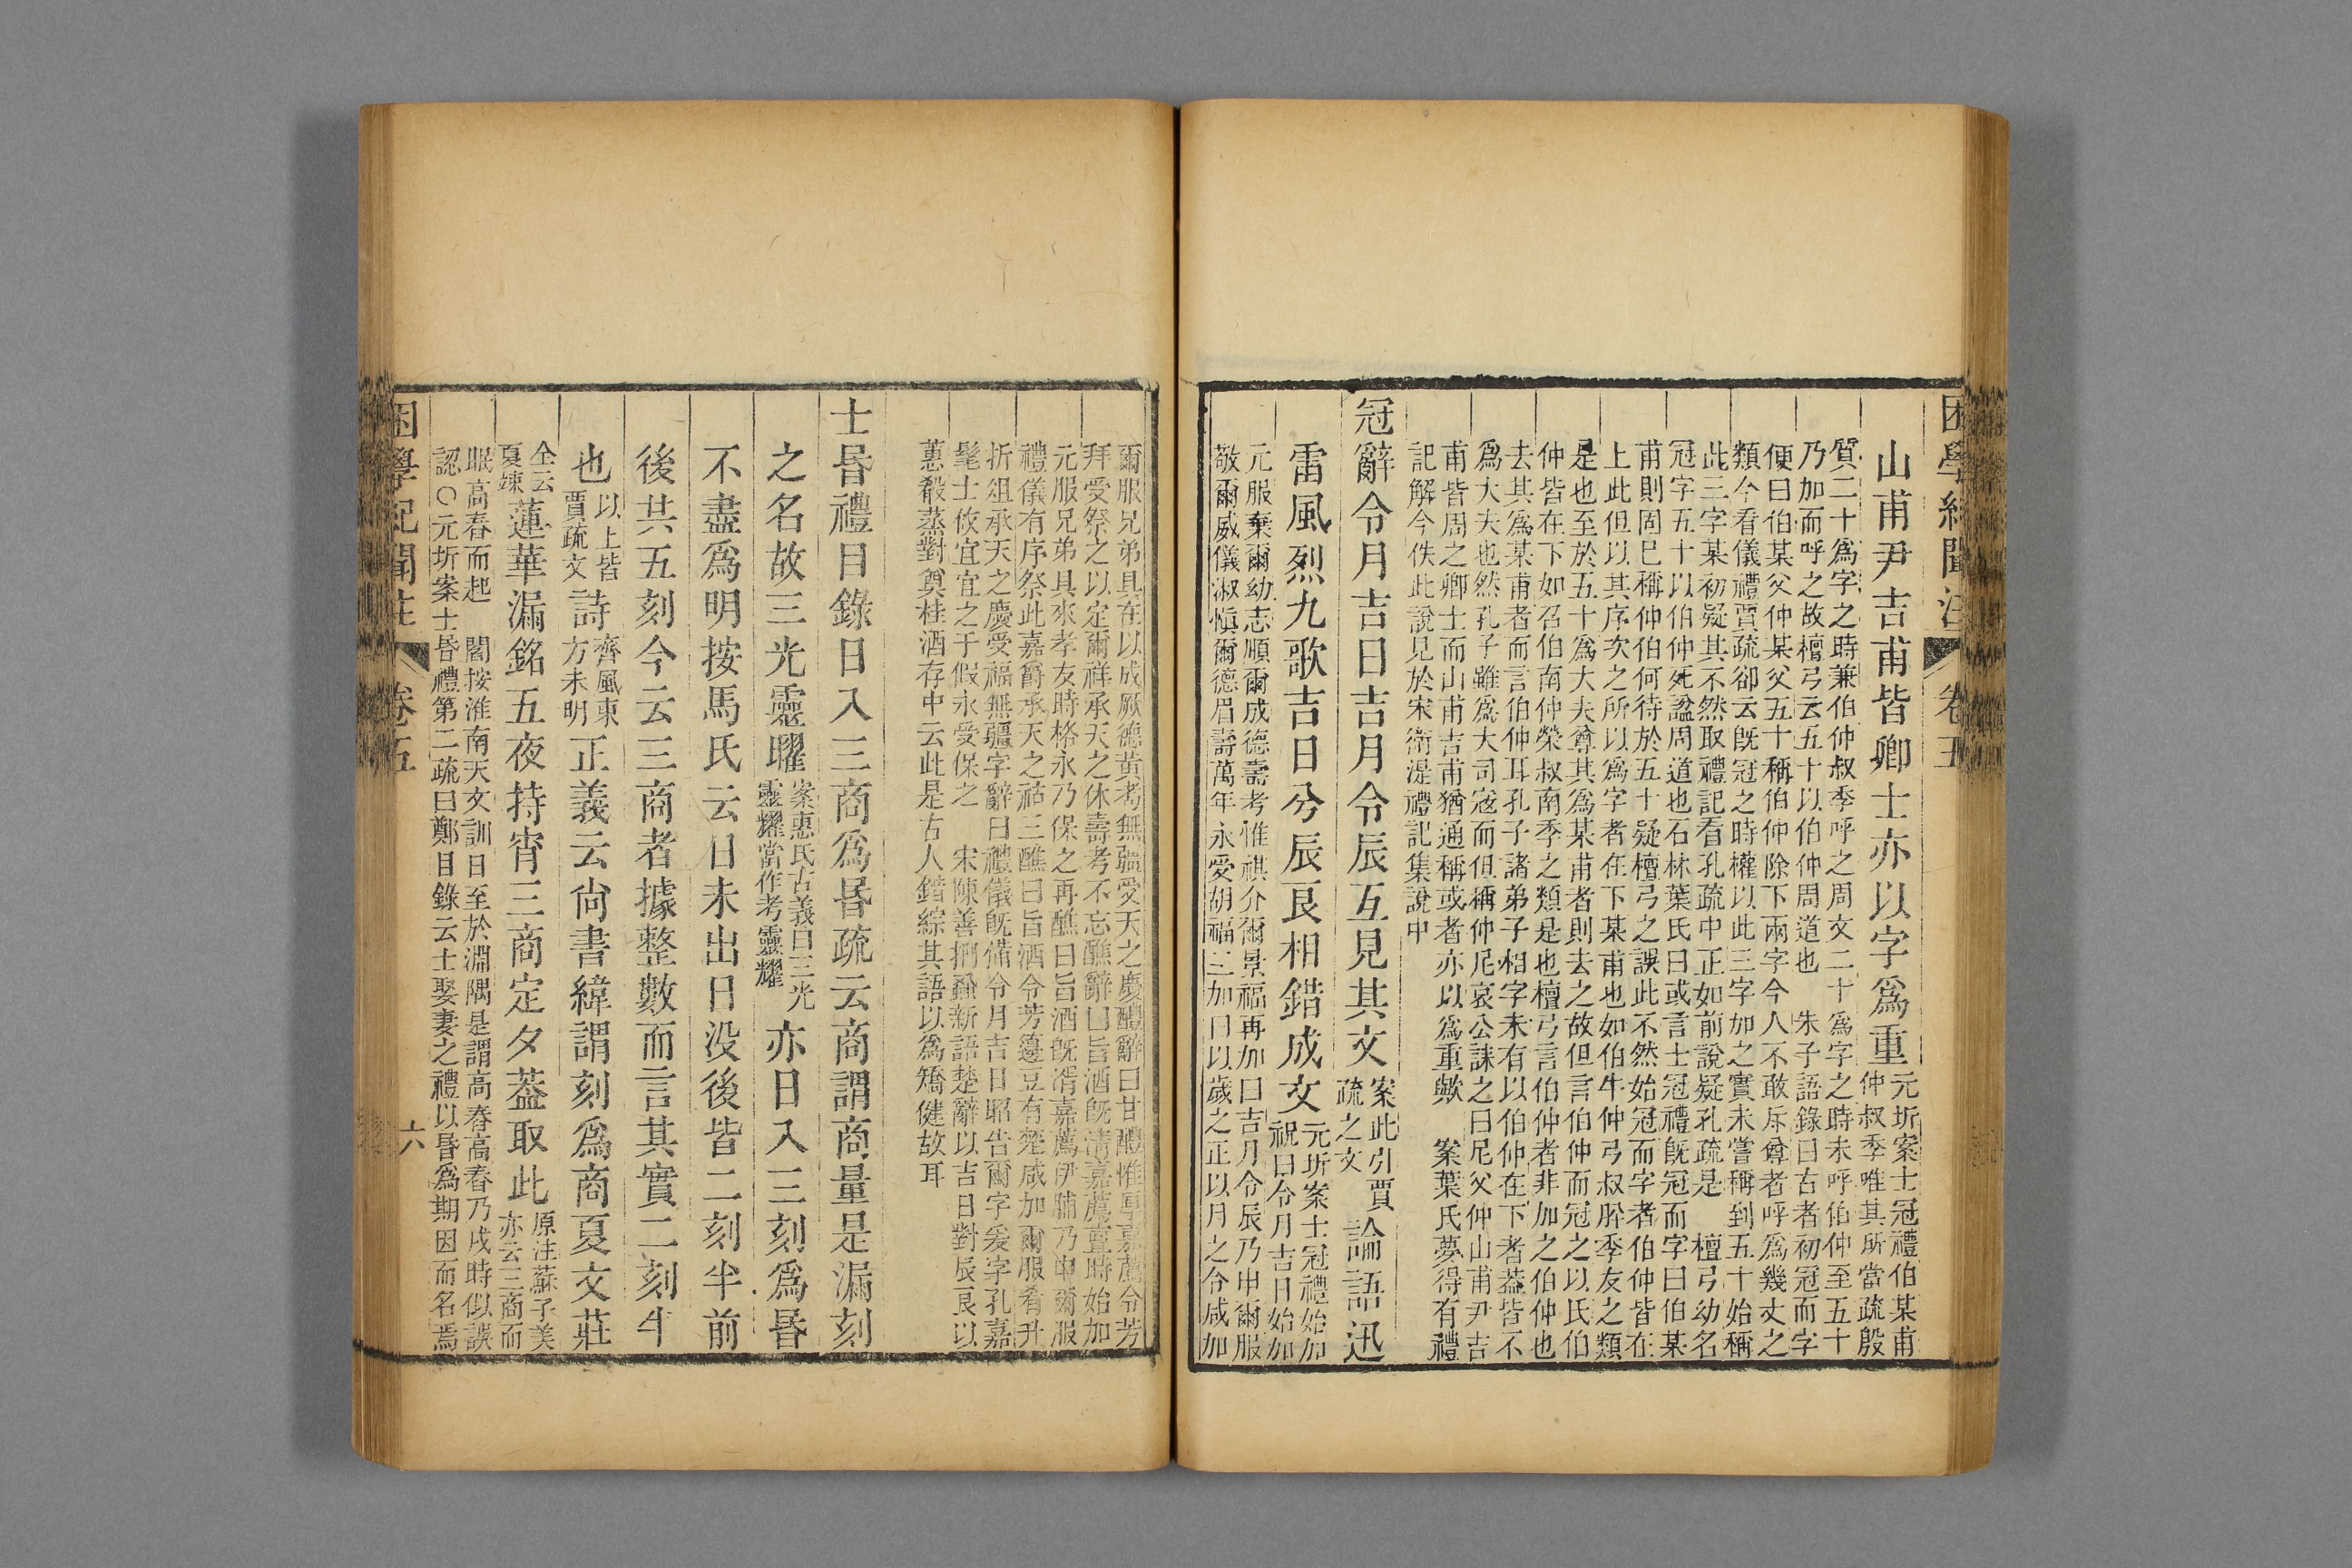 困學紀聞注 卷五
山甫尹吉甫皆卿士亦以字爲重元圻案士冠禮伯某甫
仲叔季唯其所當疏殷
質二十爲字之時兼伯仲叔季呼之周文二十爲字之時未呼伯仲至五十
乃加而呼之故檀弓云五十以伯仲周道也 朱子語錄曰古者初冠而字
便曰伯某父仲某父五十稱伯仲除下兩字今人不敢斥尊者呼爲幾丈之
類今看儀禮賈疏卻云旣冠之時權以此三字加之實未嘗稱到五十始稱
此三字某初疑其不然取禮記看孔疏中正如前說疑孔疏是 檀弓幼名
冠字五十以伯仲死諡周道也石林葉氏曰或言士冠禮旣冠而字曰伯某
甫則固已稱仲伯何待於五十疑檀弓之誤此不然始冠而字者伯仲皆在
上此但以其序次之所以爲字者在下某甫也如伯牛仲弓叔肸季友之類
是也至於五十爲大夫尊其爲某甫者則去之故但言伯仲而冠之以氏伯
仲皆在下如召伯南仲榮叔南季之類是也檀弓言伯仲者非加之伯仲也
去其爲某甫者而言伯仲耳孔子諸弟子相字未有以伯仲在下者蓋皆不
爲大夫也然孔子雖爲大司寇而但稱仲尼哀公誄之曰尼父仲山甫尹吉
甫皆周之卿士而山甫吉甫猶通稱或者亦以爲重歟 案葉氏夢得有禮
記解今佚此說見於宋衛湜禮記集說中
冠辭令月吉日吉月令辰互見其文案此引賈
疏之文論語迅
雷風烈九歌吉日兮辰良相錯成文元圻案士冠禮始加
祝曰令月吉日始加
元服棄爾幼志順爾成德壽考惟祺介爾景福再加曰吉月令辰乃申爾服
敬爾威儀淑愼爾德眉壽萬年永受胡福三加曰以歲之正以月之令咸加
爾服兄弟具在以成厥德黃耇無疆受天之慶醴辭曰甘醴惟厚嘉薦令芳
拜受祭之以定爾祥承天之休壽考不忘醮辭曰旨酒旣清嘉薦亶時始加
元服兄弟具來孝友時格永乃保之再醮曰旨酒旣湑嘉薦伊脯乃申爾服
禮儀有序祭此嘉爵承天之祜三醮曰旨酒令芳籩豆有楚咸加爾服肴升
折俎承天之慶受福無疆字辭曰禮儀旣備令月吉日昭告爾字爰字孔嘉
髦士攸宜宜之于假永受保之 宋陳善捫蝨新語楚辭以吉日對辰良以
蕙殽蒸對奠桂酒存中云此是古人錯綜其語以爲矯健故耳
士昏禮目錄日入三商爲昏疏云商謂商量是漏刻
之名故三光靈曜案惠氏古義曰三光
靈耀當作考靈耀亦日入三刻爲昏
不盡爲明按馬氏云日未出日没後皆二刻半前
後共五刻今云三商者據整數而言其實二刻半
也以上皆
賈疏文詩齊風東
方未明正義云尙書緯謂刻爲商夏文莊
全云
夏竦蓮華漏銘五夜持宵三商定夕葢取此原注蘇子美
亦云三商而
眠高舂而起 閻按淮南天文訓日至於淵隅是謂高舂高舂乃戌時似誤
認○元圻案士昏禮第二疏曰鄭目錄云士娶妻之禮以昏爲期因而名焉
困學紀聞注 卷五 六